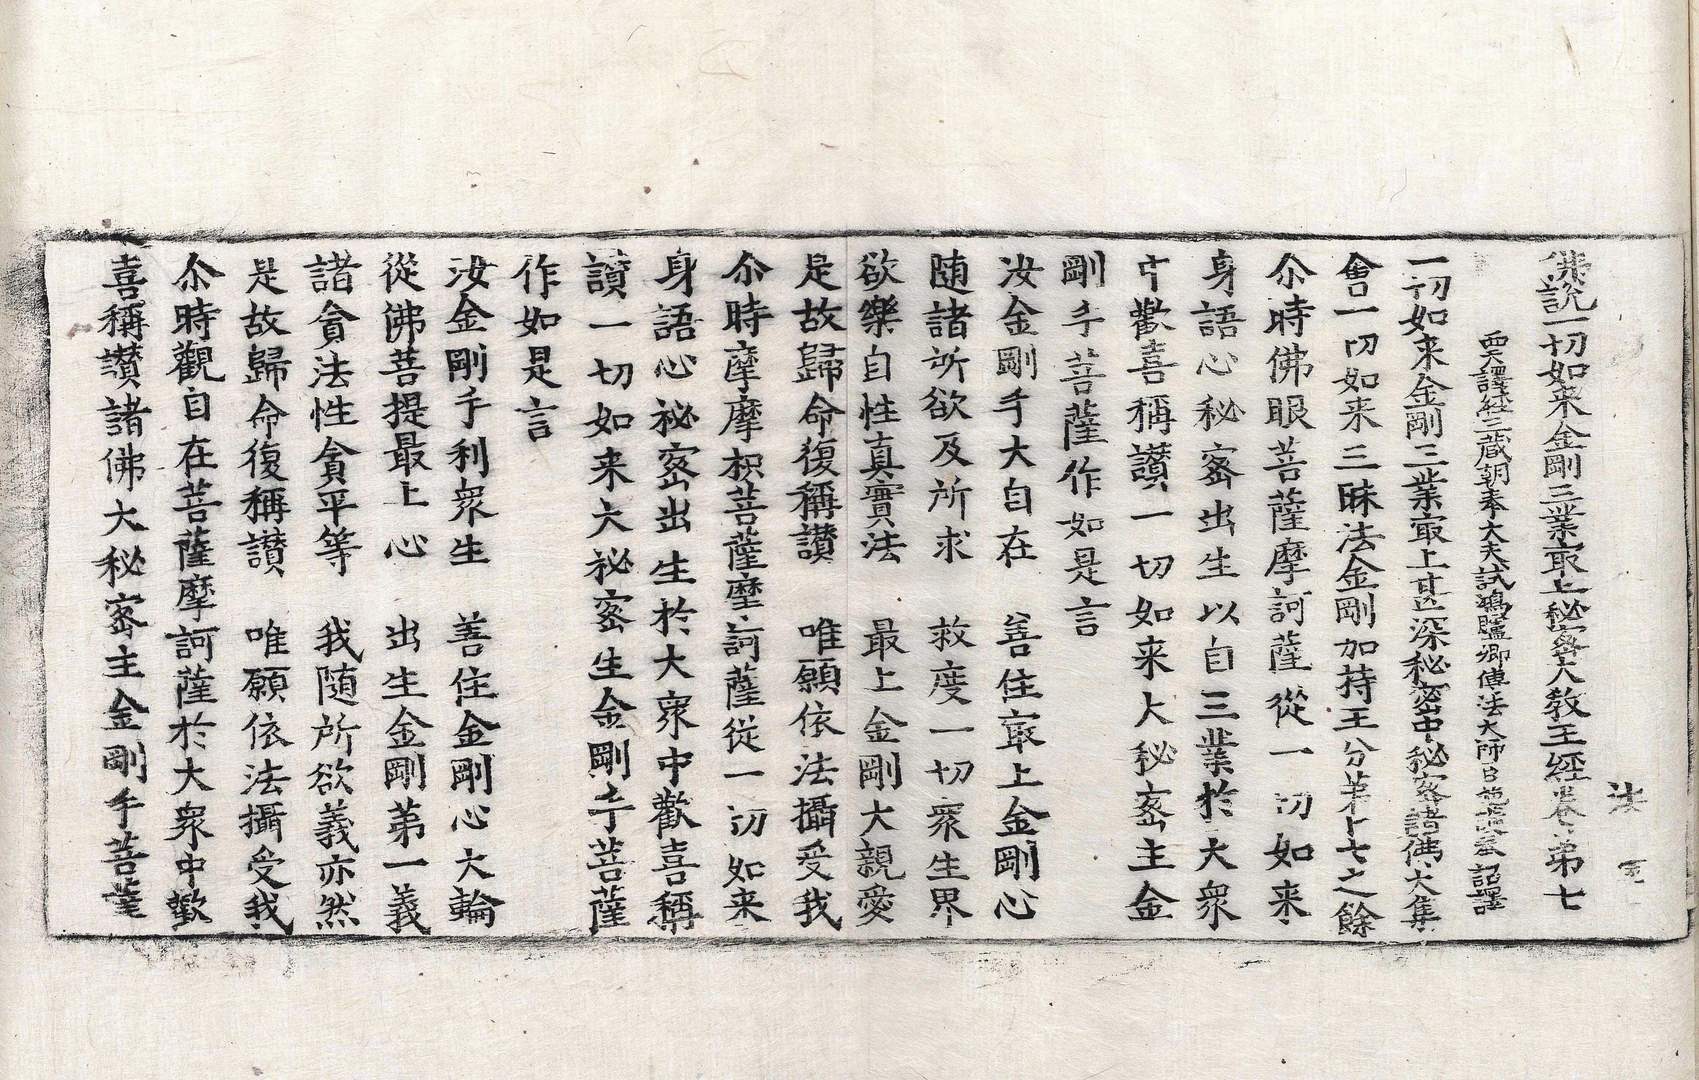 法
佛說一切如來金剛三業最上秘密大教王經卷第七
西天譯經三藏朝奉大夫試鴻臚卿傳法大師臣施護奉 詔譯
一切如来金剛三業㝡上甚深秘密中秘密諸佛大集
會一切如来三昧法金剛加持王分苐十七之餘
尒時佛眼菩薩摩訶薩從一切如来
身語心秘密出生以自三業於大衆
中歡喜稱讃一切如来大秘密主金
剛手菩薩作如是言
汝金剛手大自在　善住㝡上金剛心
随諸所欲及所求　救度一切衆生界
欲樂自性真實法　最上金剛大親愛
是故歸命復稱讃　唯願依法攝受我
尒時摩摩枳菩薩摩訶薩從一切如来
身語心祕密出生於大衆中歡喜稱
讃一切如来大祕密主金剛手菩薩
作如是言
汝金剛手利衆生　善住金剛心大輪
從佛菩提最上心　出生金剛苐一義
諸貪法性貪平等　我随所欲義亦然
是故歸命復稱讃　唯願依法攝受我
尒時觀自在菩薩摩訶薩於大衆中歡
喜稱讃諸佛大秘密主金剛手菩薩